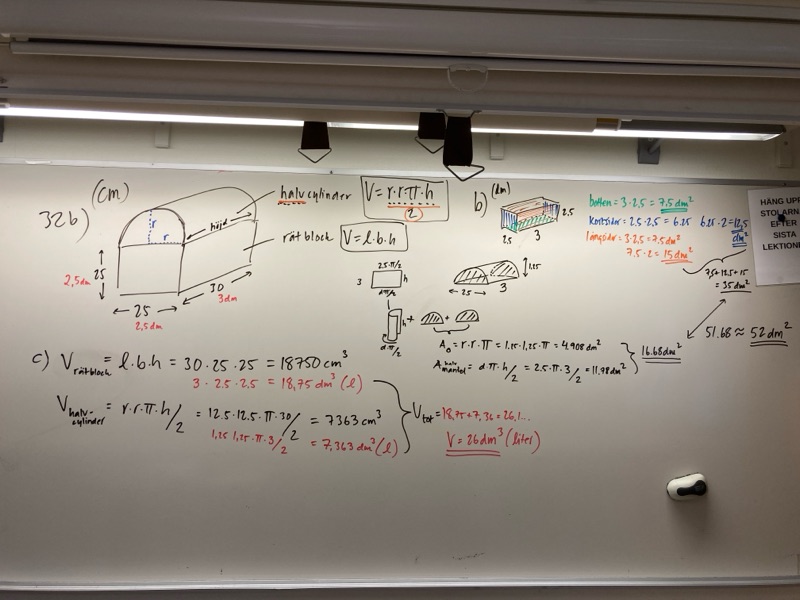 32b) (cm)
halvcylinder V = r·r·π·h/2
rätblock V = l·b·h
höjd
r
r
25
2,5dm
25
2,5dm
30
3dm
b) (dm)
2.5
2.5 3
botten = 3·2,5 = 7.5 dm²
kortsidor = 2.5·2.5 = 6.25 6.25·2 = 12,5 dm²
långsidor = 3·2.5 = 7.5 dm²
7.5·2 = 15 dm²
7,5+12.5+15
= 35 dm²
2.5·π/2
3 h
d·π/2
1.25
25 3
h + +
d·π/2
A○ = r·r·π = 1.25·1.25·π = 4.908 dm²
A halv mantel = d·π·h/2 = 2.5·π·3/2 = 11,78 dm²
16.68 dm²
51.68 ≈ 52 dm²
c) V rätblock = l·b·h = 30·25·25 = 18750 cm³
3·2.5·2.5 = 18,75 dm³ (l)
V halv-cylinder = r·r·π·h/2 = 12.5·12.5·π·30/2 = 7363 cm³
1,25·1,25·π·3/2 = 7,363 dm³ (l)
V tot = 18,75+7,36 = 26,1...
V = 26 dm³ (liter)
HÄNG UPP
STOLARN
EFTER
SISTA
LEKTIONE